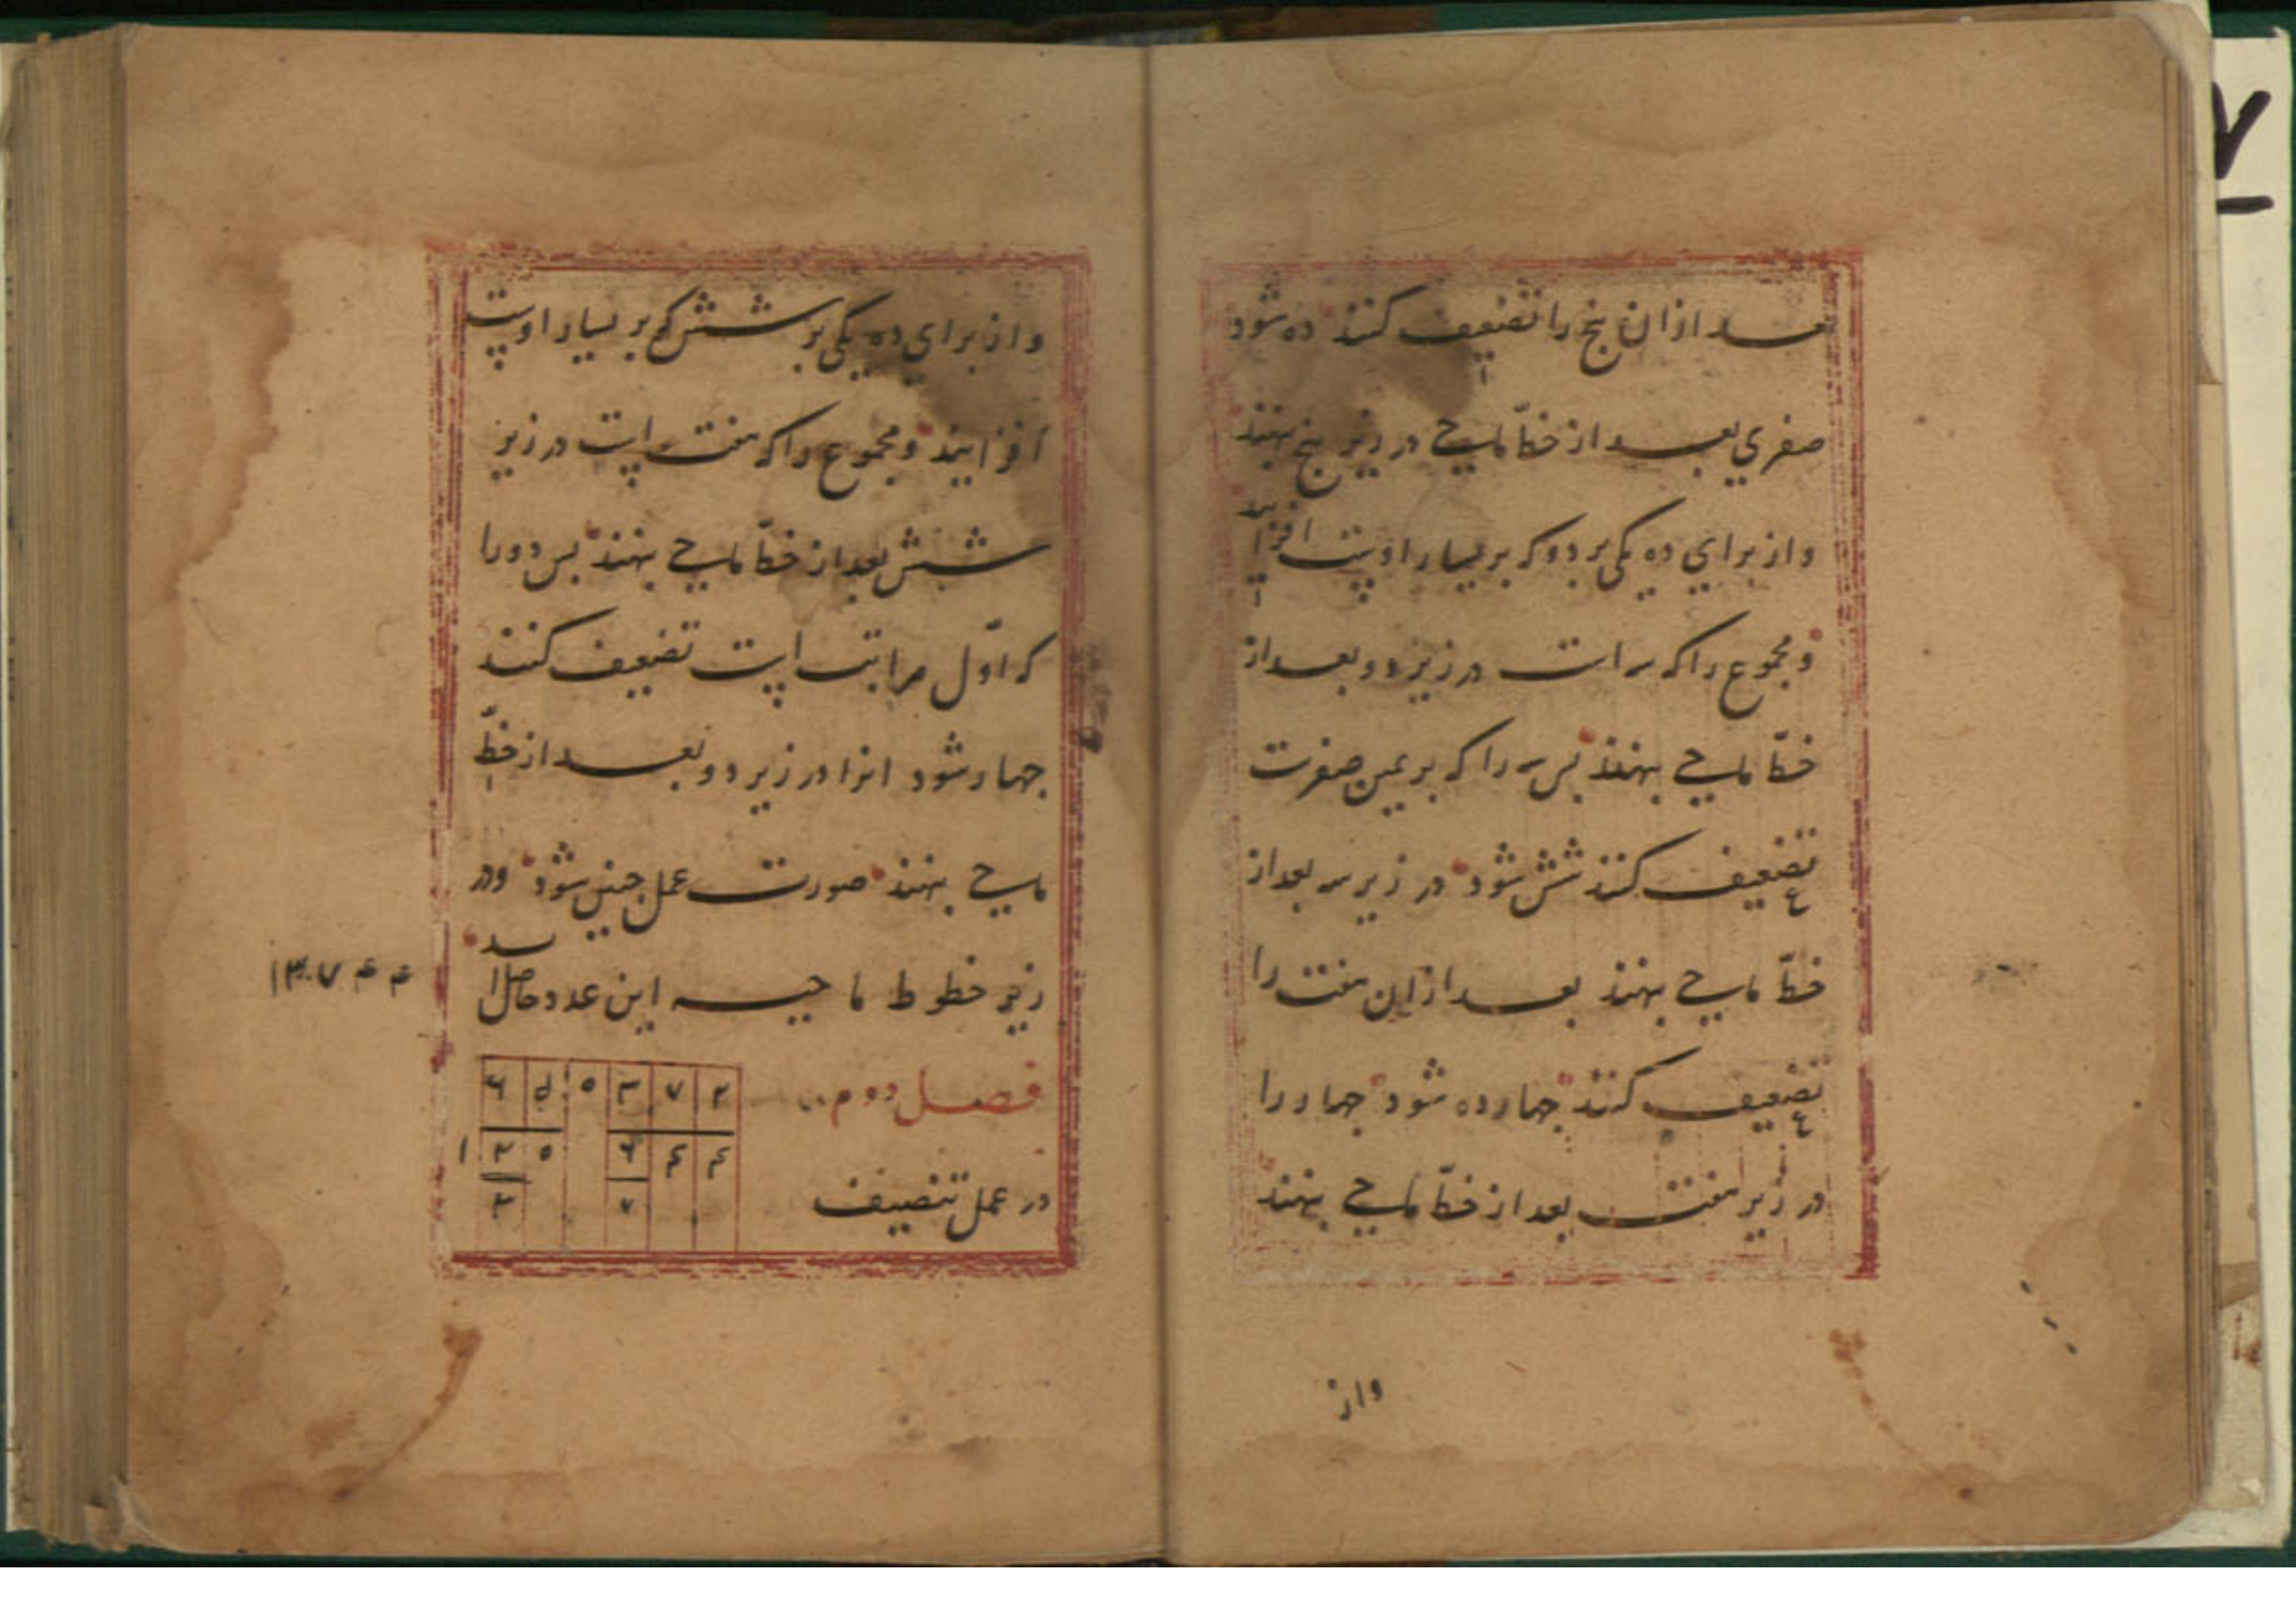 بعد ازان پنج را تضعیف کنند ده شود
صفری بعد از خطّ ماحی در زیر پنج نهند
و از برای ده یکی بر دو که بر یسار اوست افزایند
و مجموع را که سه است در زیر دو بعد از
خطّ ماحی نهند پس سه را که بر یمین صفرست
تضعیف کنند شش شود در زیر سه بعد از
خطّ ماحی نهند بعد ازان هفت را
تضعیف کنند چهارده شود چهار را
در زیر هفت بعد از خطّ ماحی نهند
واز
و از برای ده یکی بر شش که بر یسار اوست
افزایند و مجموع را که هفت است در زیر
شش بعد از خطّ ماحی نهند پس دو را
که اوّل مراتب است تضعیف کنند
چهار شود انرا در زیر دو و بعد از خطّ
ماحی نهند صورت عمل چنین شود و در
زیر خطوط ماحیه این عدد حاصل اید
۱۳۰۷۴۴
فصل دوم
در عمل تنصیف
۶ ۵ ۰ ۳ ۷ ۲
۱ ۲ ۰ ۶ ۴ ۴
۳ ۷